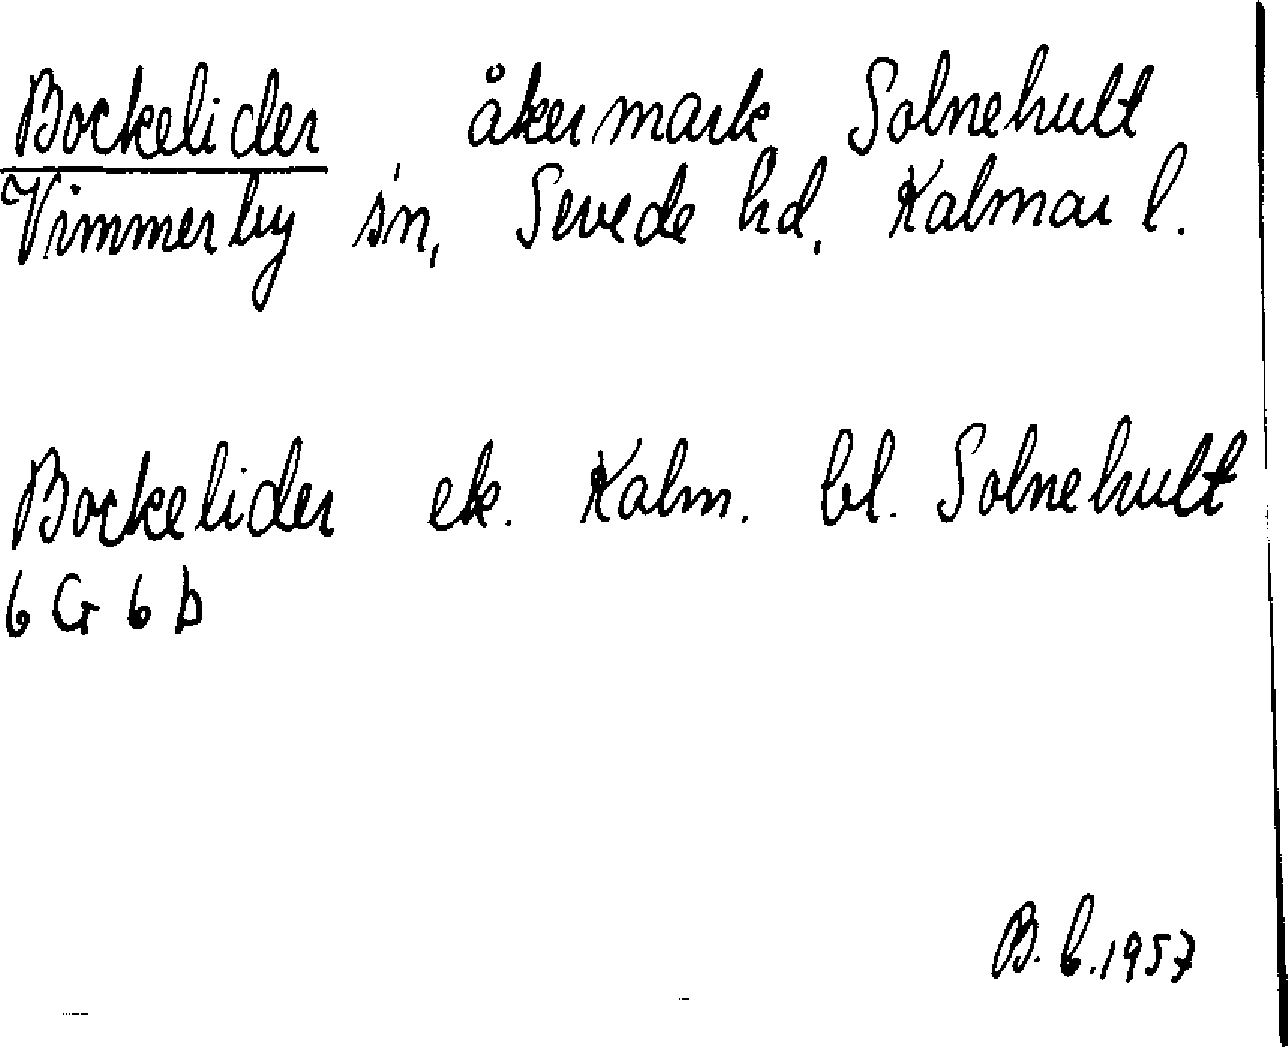 Bockelider åkermark Solnehult
Vimmerby sn, Sevede hd, Kalmar l.
Bockelider ek. Kalm. bl. Solnehult
6 G 6 b
B. b. 1957